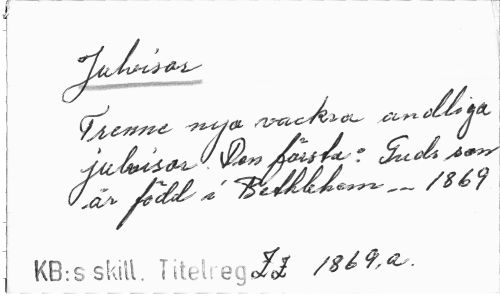 Julvisor
Trenne nya vackra andliga
julvisor. Den första: Guds son
är född i Bethlehem -- 1869
KB:s skill. Titelreg ZZ 1869.a.